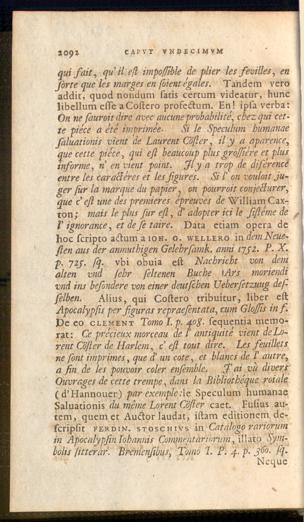 2092 CAPVT VNDECIMVM
qui fait, qu'il est impossible de plier les feuilles, en
sorte que les marges en soient égales. Tandem vero
addit, quod nondum satis certum videatur, hunc
libellum esse a Costero profectum. En! ipsa verba:
On ne sauroit dire avec aucune probabilité, chez qui cet-
te pièce a été imprimée. Si le Speculum humanae
saluationis vient de Laurent Cöster, il y a aparence,
que cette pièce, qui est beaucoup plus grossière et plus
informe, n'en vient point. Il y a trop de diférence
entre les caractères et les figures. Si l'on vouloit ju-
ger sur la marque du papier, on pourroit conjecturer,
que c'est une des premieres épreuves de William Cax-
ton; mais le plus sur est, d'adopter ici le sistéme de
l'ignorance, et de se taire. Data etiam opera de
hoc scripto actum a IOH. G. WELLERO in dem Neue-
sten aus der anmuthigen Gelehrsamk. anni 1752. P. X.
p. 725. sq. vbi obuia est Nachricht von dem
alten vnd sehr seltenen Buche Ars moriendi
vnd ins besondere von einer deutschen Uebersetzung des-
selben. Alius, qui Costero tribuitur, liber est
Apocalypsi per figuras repraesentata, cum Glossis in f.
De eo CLEMENT Tomo I. p. 408. sequentia memo-
rat: Ce précieux morceau de l'antiquité vient de Lo-
rent Cöster de Harlem, c'est tout dire. Les feuillets
ne sont imprimes, que d'un cote, et blancs de l'autre,
a fin de les pouvoir coler ensemble. J'ai vü divers
Ouvrages de cette trempe, dans la Bibliothéque roiale
(d'Hannouer) par exemple: le Speculum humanae
Saluationis du même Lorent Cöster caet. Fusius au-
tem, quem et Auctor laudat, istam editionem de-
scripsit FERDIN. STOSCHIVS in Catalogo rariorum
in Apocalypsin Iohannis Commentariorum, illato Sym-
bolis litterar. Bremensibus, Tomo I. P. 4. p. 560. sq.
Neque